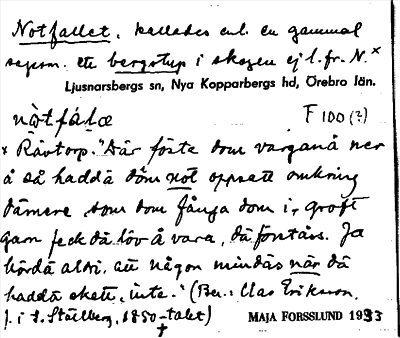 Notfallet, kallades enl. en gammal
sagesm. ett bergstup i skogen ej l. fr. N.ˣ
Ljusnarsbergs sn, Nya Kopparbergs hd, Örebro län.
nòtfálæ F 100 (?)
x Råvtorp. "Där föste dom varganå ner
å så haddä döm not oppsatt omkring
dämere som dom fånga dom i, grovt
garn feck dä löv å vara, dä föståss. Ja
hördä aldri, att någon mindäs när dä
haddä skett, inte." (Ber.: Clas Eriksson,
f. i St. Stålberg, 1850-talet)
†
MAJA FORSSLUND 1933